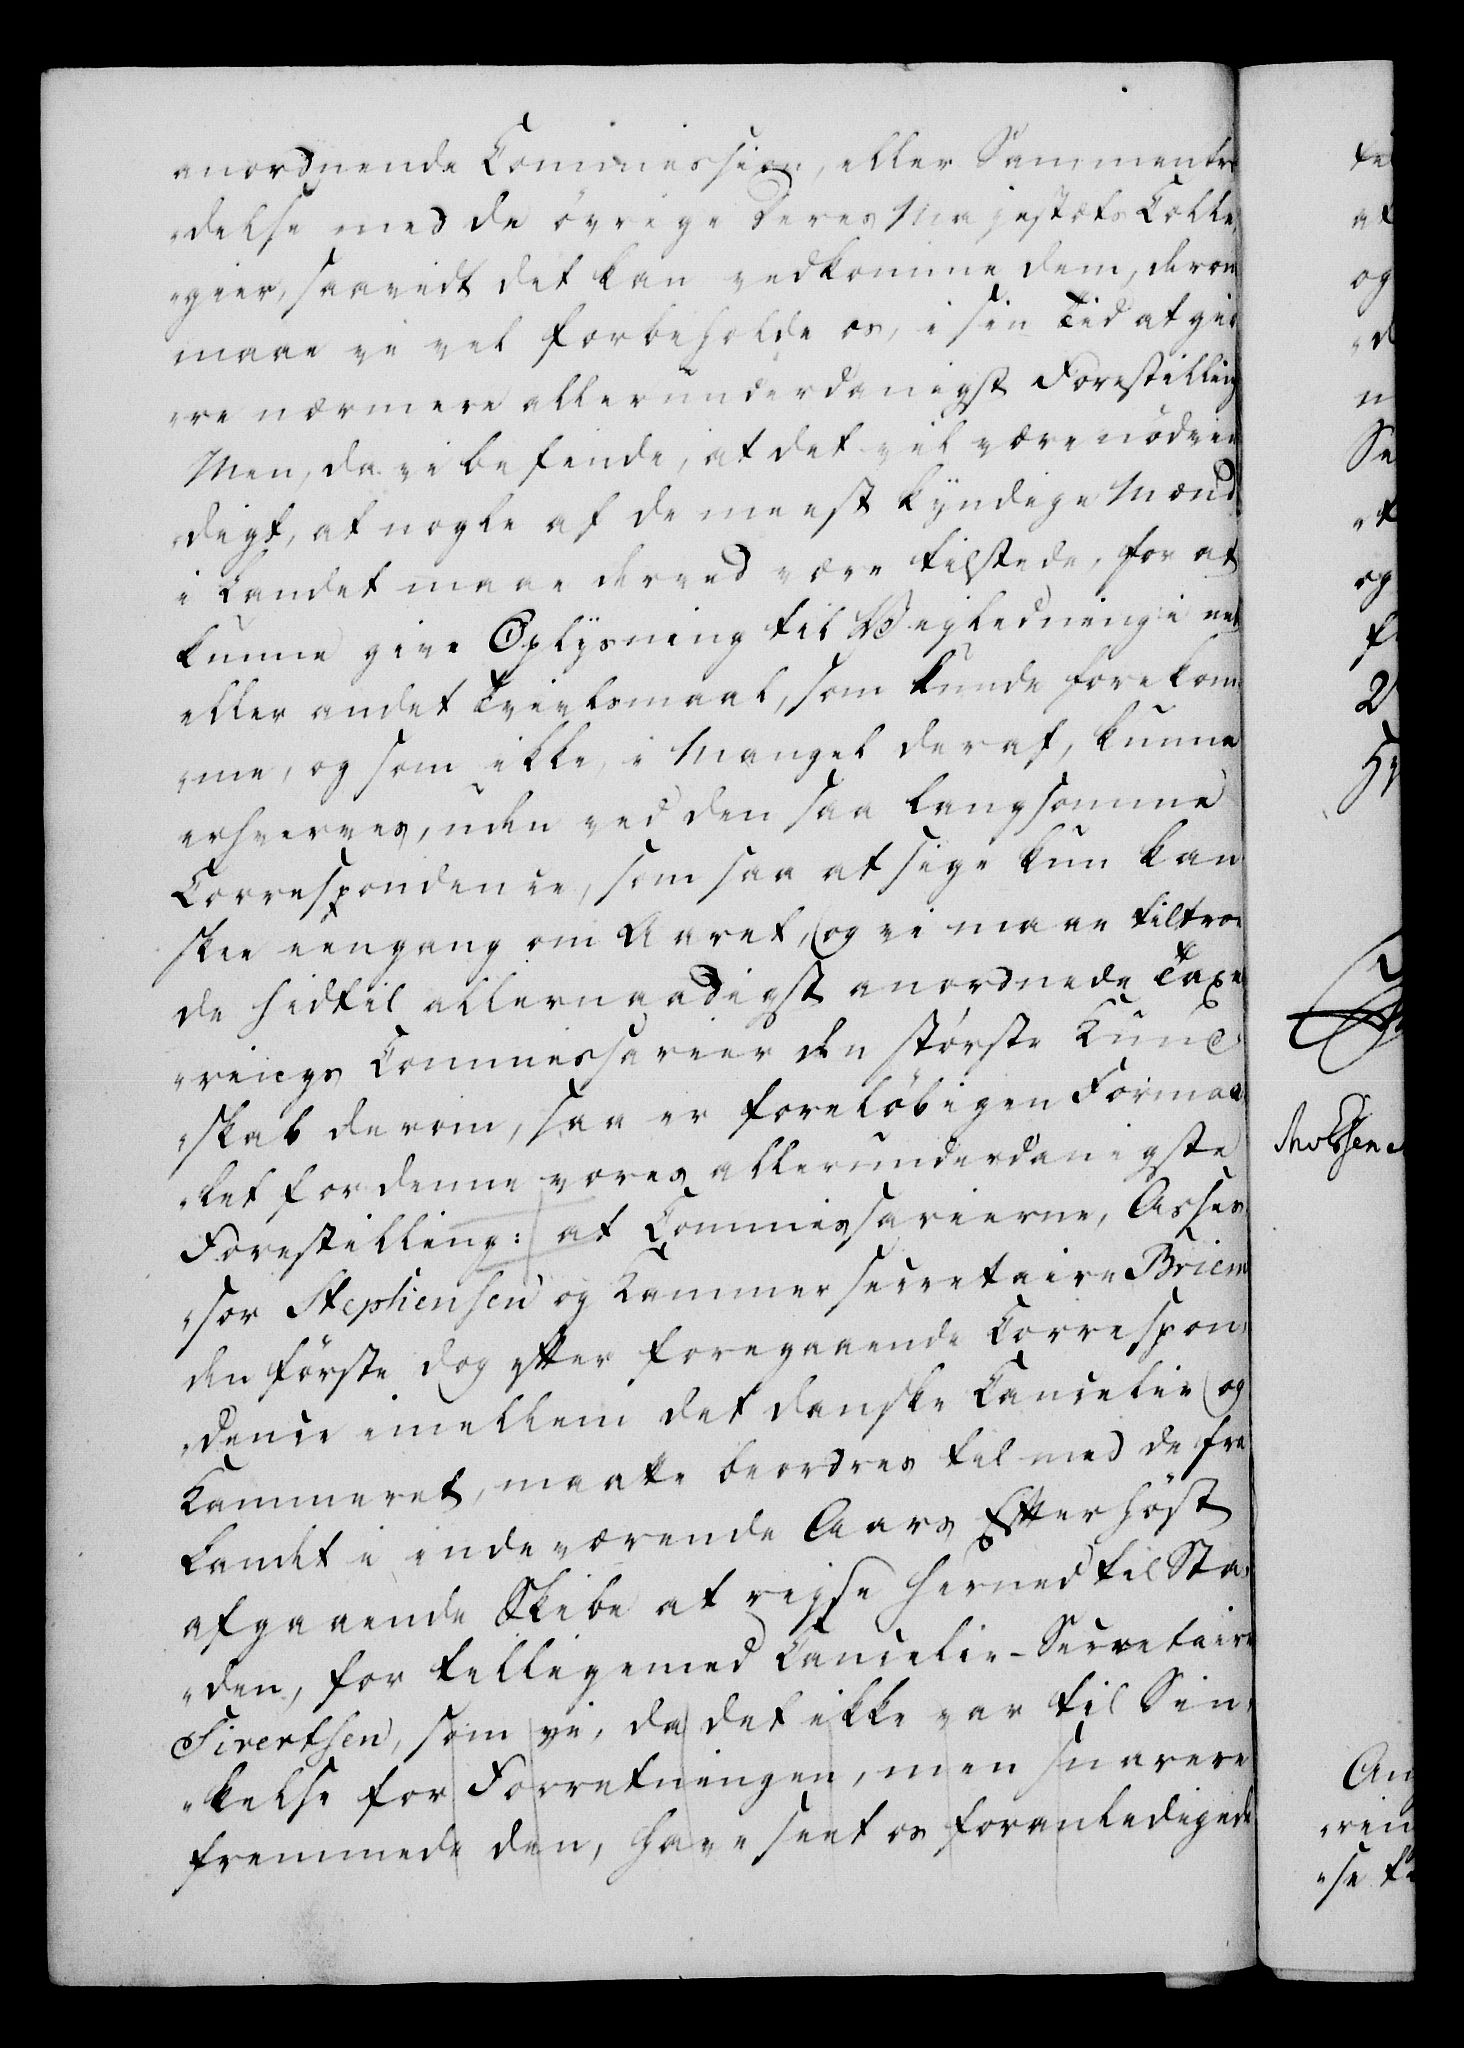 anordnende Commission, eller Sammentræ
"delse med de övrige Deres Majestæts Colle,
"gier, saavidt det kan vedkomme dem, derom
maae vi vel forbeholde os, i sin Tid at giö
"re nærmere allerunderdanigst Forestilling
Men, da vi befinde, at det vil være nödven
"digt, at nogle af de meest kÿndige Mænd
i Landet maae derved være tilstede, for at
kunne give Oplÿsning til Vejledning i eet
eller andet Tvivlsmaal, som kunde forekom
"me, og som ikke, i Mangel deraf, kunne
erhverves, uden ved den saa langsomme
Correspondence, som saa at sige kun kan
skee eengang om Aaret, og vi maae tiltroe
de hidtil allernaadigst anordnede Taxe
"rings Commissarier den störste Kund
"skab derom, saa er foreløbigen Formaa
"let for denne vores allerunderdanigste
Forestilling: at Commissarierne, Asses
"sor Stephensen og Kammersecretaire Briem
den förste dog efter foregaaende Correspon,
"dence imellem det danske Cancelie og
Kammeret, maatte beordres til med de fra
Landet i indeværende Aars Efterhöst
afgaaende Skibe at rejse herned til Sta,
"den, for tilligemed Cancelie-Secretaire
Sivertsen, som vi, da det ikke var til Sin,
"kelse for Forretningen, men snarere
fremmede den, have seet os foranledigede